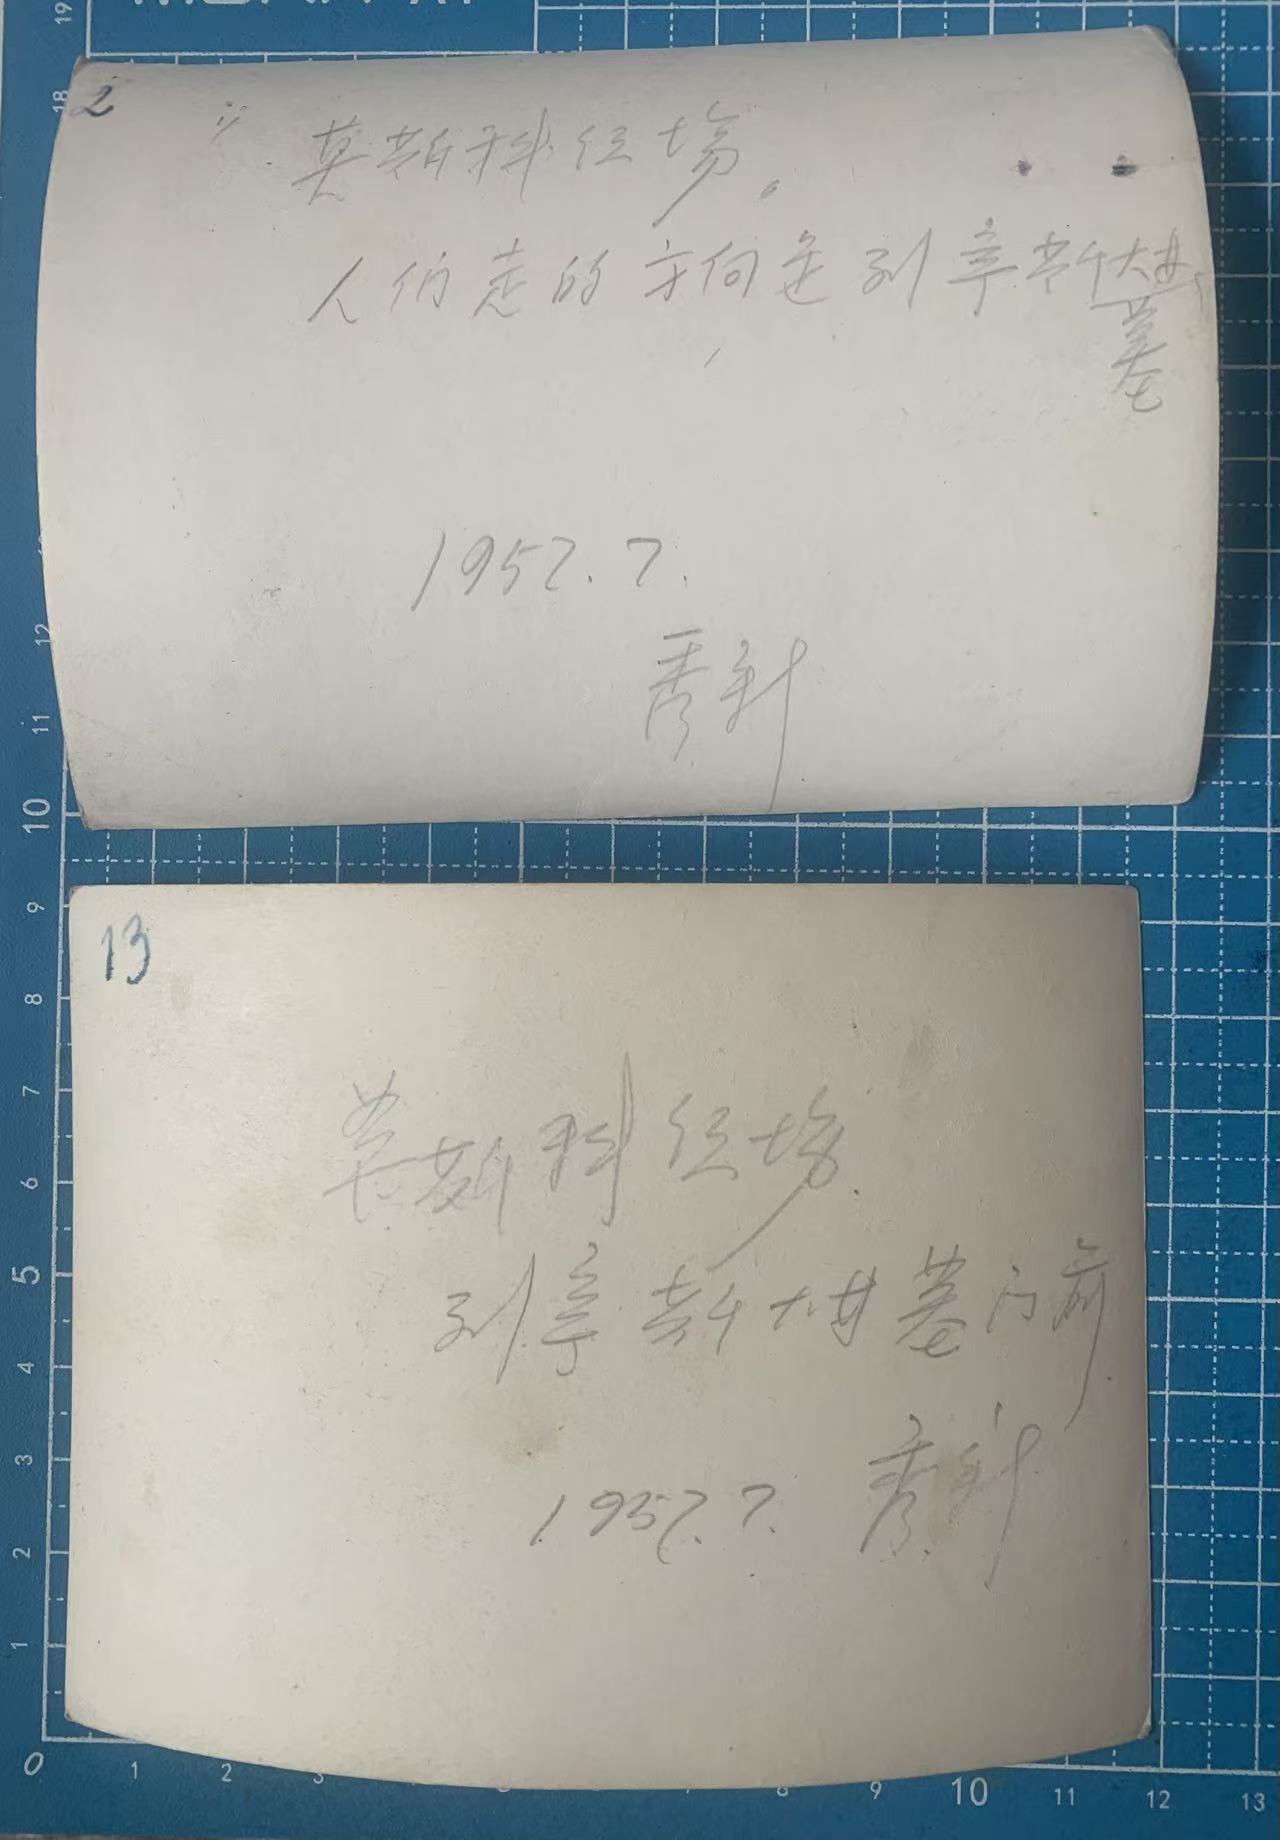 2
莫斯科红场。
人们走的方向是列宁斯大林
墓
1957.7.
秀针
13
莫斯科红场
列宁斯大林墓门前
1957.7. 秀针
19
18
12
11
10
9
8
7
6
5
4
3
2
1
0
1 2 3 9 10 11 12 13